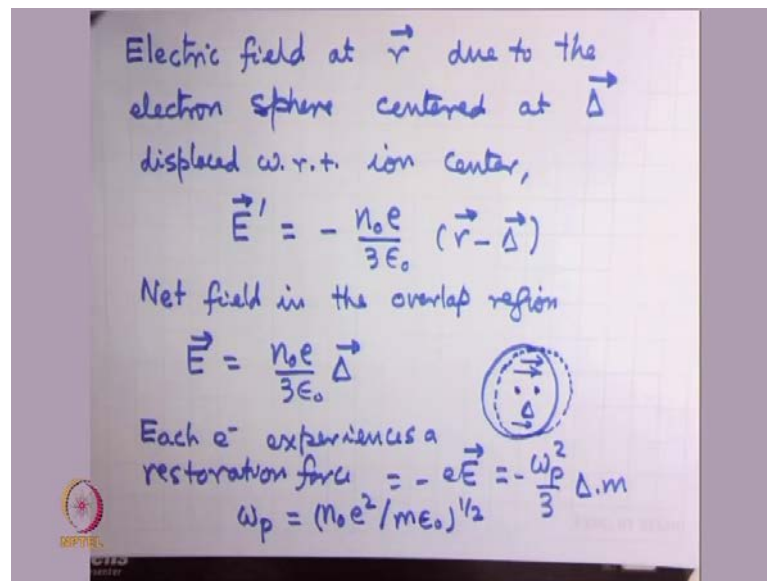 Electric field at r⃗ due to the
electron sphere centered at Δ⃗
displaced w.r.t. ion center,
E⃗' = - n₀e/3ϵ₀ (r⃗ - Δ⃗)
Net field in the overlap region
E⃗ = n₀e/3ϵ₀ Δ⃗
Δ
Each e⁻ experiences a
restoration force = - eE⃗ = - ωₚ²/3 Δ.m
ωₚ = (n₀e²/mϵ₀)^1/2
NPTEL